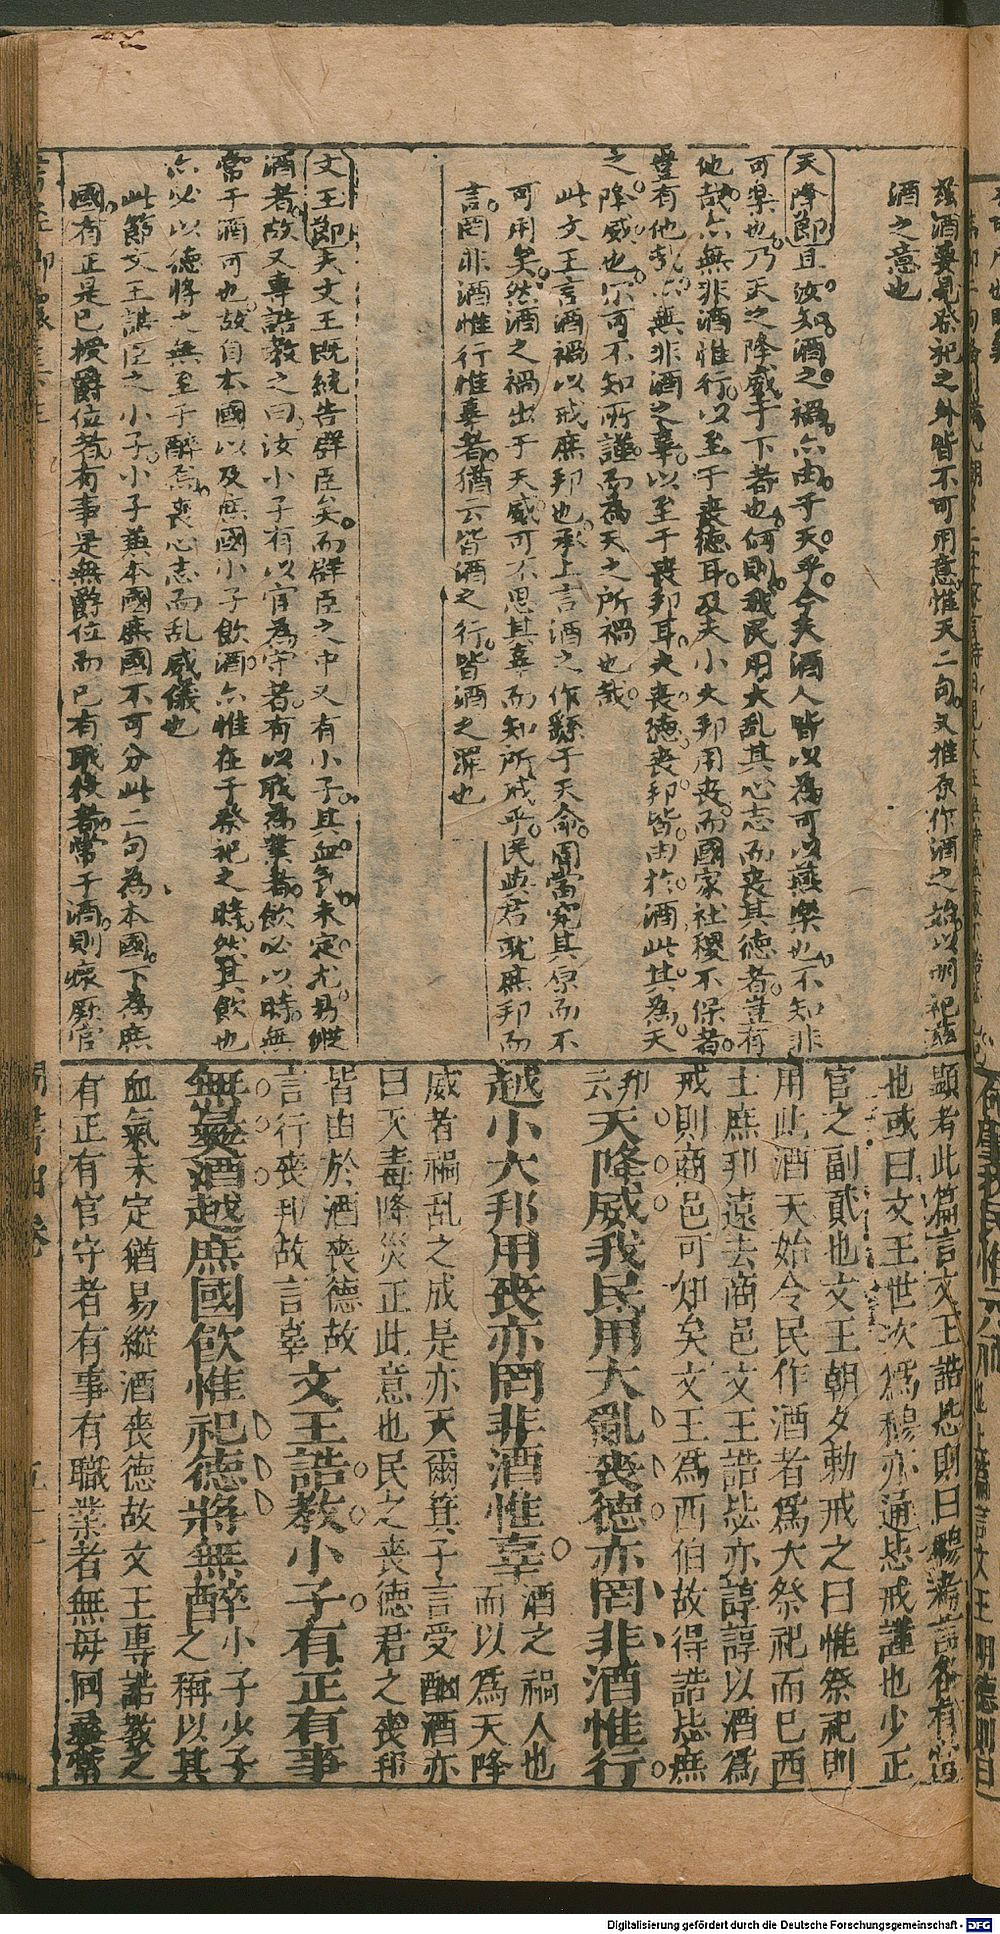 茲酒要見祭祀之外皆不可用意惟天二句又推原作酒之始以明祀茲
酒之意也
天降節且汝知酒之禍亦由于天乎今夫酒人皆以為可以燕樂也不知非
可樂也乃天之降威于下者也何則我民用大乱其心志而喪其德者豈有
他哉亦無非酒惟行以至于喪德耳及夫小大邦用喪而國家社稷不保者
豈有他哉亦無非酒之辜以至于喪邦耳夫喪德喪邦皆由於酒此其為天
之降威也尔可不知所謹而為天之所禍也哉
此文王言酒禍以戒庶邦也承上言酒之作繇于天命固當究其原而不
可用矣然酒之禍出于天威可不思其辜而知所戒乎民與君就庶邦而
言罔非酒惟行惟辜者猶云皆酒之行皆酒之罪也
文王節夫文王既統告群臣矣而群臣之中又有小子且血氣未定尤易縱
酒者故又專誥教之曰汝小子有以官為守者有以職為業者飲必以時無
常于酒可也故自本國以及庶國小子飲酒亦惟在于祭祀之時然其飲也
亦必以德將之無至于醉焉喪心志而乱威儀也
此節文王誥臣之小子小子兼本國庶國不可分此二句為本國下為庶
國有正是已授爵位者有事是無爵位而已有職役者常于酒則瘝厥官
顯考此篇言文王誥毖則曰穆考言各有當
也或曰文王世次爲穆亦通毖戒謹也少正
官之副貳也文王朝夕勅戒之曰惟祭祀則
用此酒天始令民作酒者爲大祭祀而巳西
土庶邦遠去商邑文王誥毖亦諄諄以酒爲
戒則商邑可知矣文王爲西伯故得誥毖庶
邦云天降威我民用大亂喪德亦罔非酒惟行
越小大邦用喪亦罔非酒惟辜酒之禍人也而以爲天降
威者禍乱之成是亦天爾箕子言受酗酒亦
曰天毒降災正此意也民之喪德君之喪邦
皆由於酒喪德故言行喪邦故言辜文王誥教小子有正有事
無彝酒越庶國飲惟祀德將無醉小子少子之稱以其
血氣未定猶易縱酒喪德故文王專誥教之
有正有官守者有事有職業者無毋同彝常